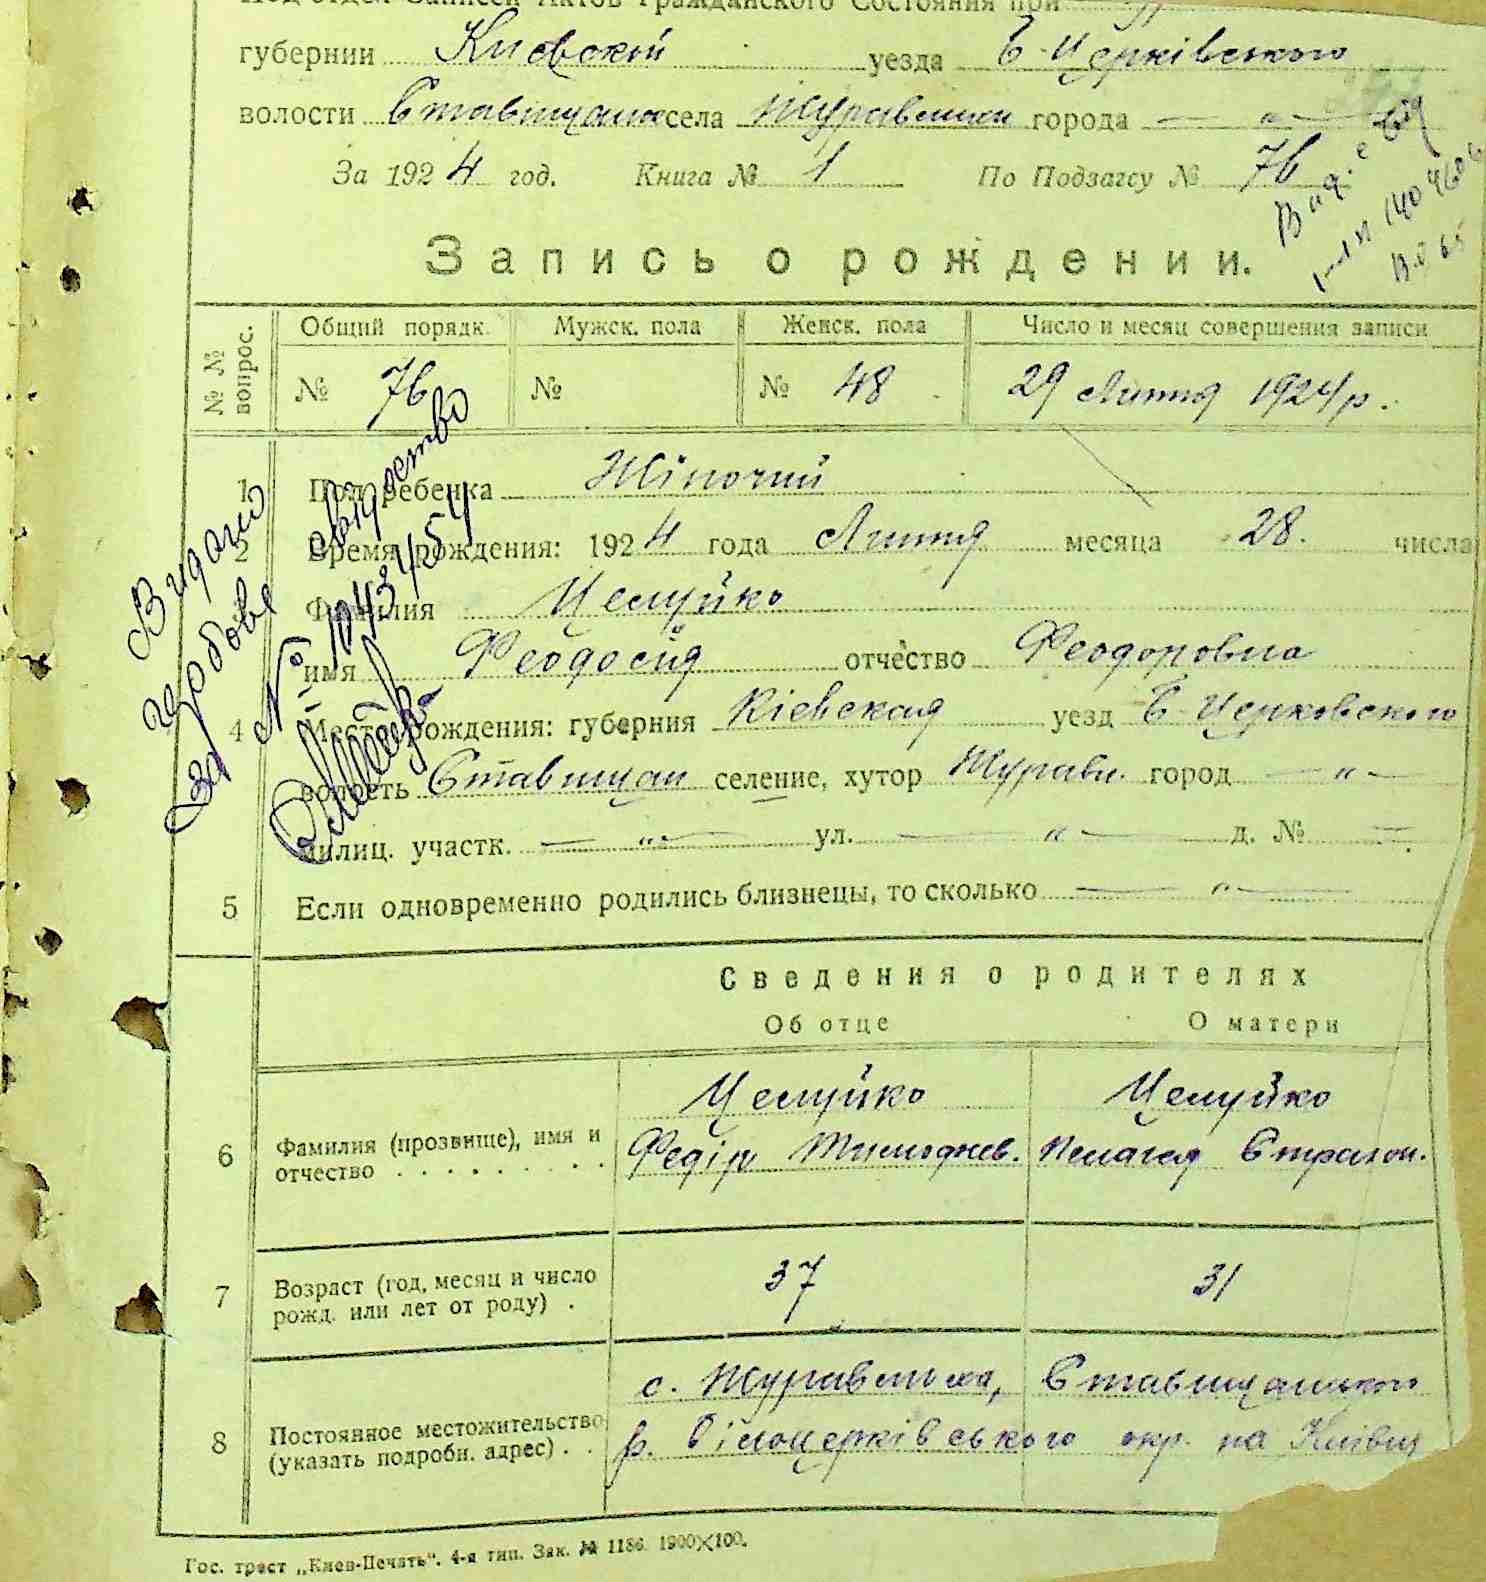 Под‘отдел Записей Актов Гражданского Состояния при
губернии Киевской уезда Б-Церківського
волости Ставищан села Журавлихи города — „ —
За 1924 год. Книга № 1 По Подзагсу № 76
Запись о рождении.
№ № вопрос. Общий порядк. Мужск. пола Женск. пола Число и месяц совершения записи
№ 76 № № 48 29 Липня 1924 р.
1 Пол ребенка Жіночий
2 Время рождения: 1924 года Липня месяца 28. числа
Фамилия Целуйко
имя Феодосія отчество Феодоровна
4 Место рождения: губерния Кіевская уезд Б-Церковского
волость Ставищан селение, хутор Журавл. город — „ —
милиц. участк. — „ — ул. — „ — д. № —.
5 Если одновременно родились близнецы, то сколько — „ —
Сведения о родителях
Об отце О матери
Целуйко Целуйко
6 Фамилия (прозвище), имя и отчество Федір Тимофіев. Пелагея Стратон.
7 Возраст (год, месяц и число рожд. или лет от роду) . 37 31
с. Журавлиха, Ставищанського
8 Постоянное местожительство (указать подробн. адрес) . . р. Білоцерківського окр. на Київщ
Гос. трест „Киев-Печать“. 4-я тип. Зак. № 1186. 1900×100.
Видано
свідоцтво
за №